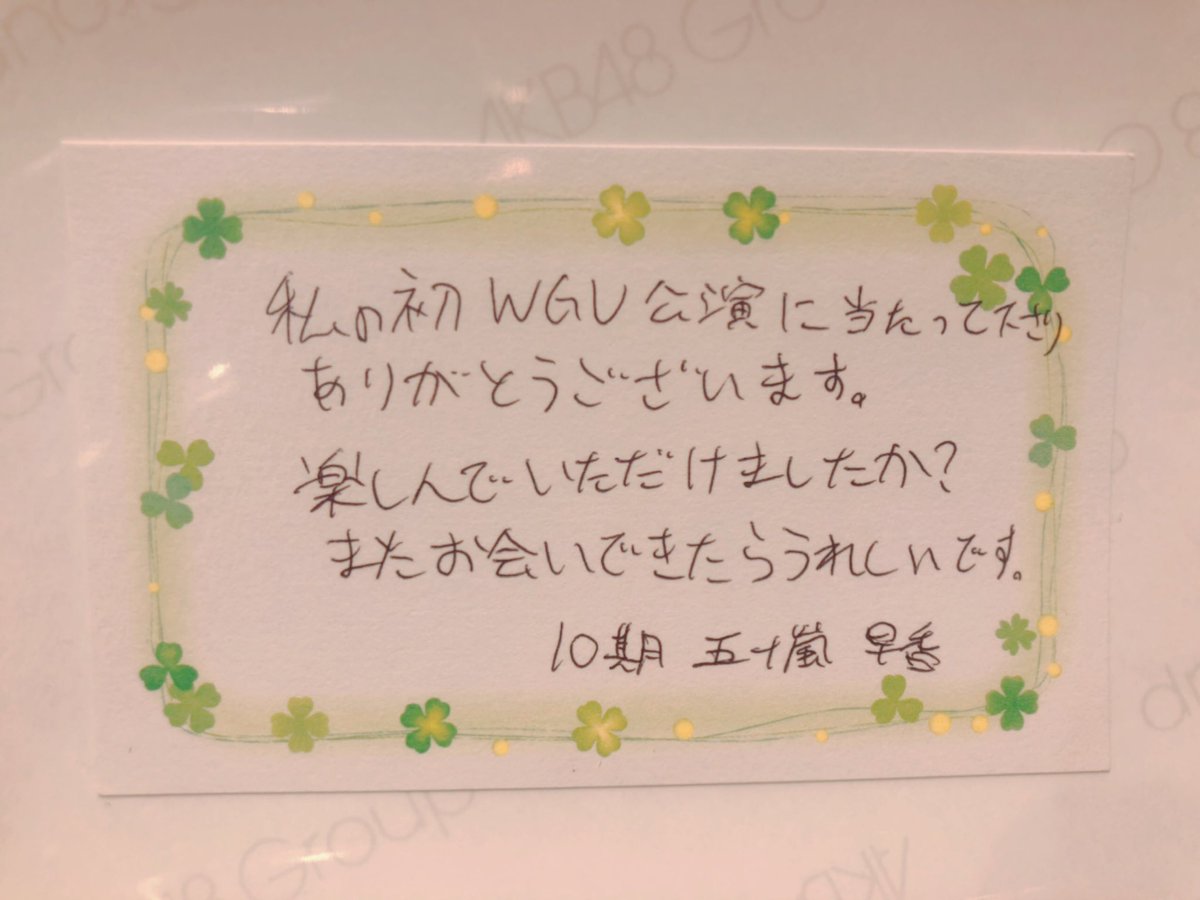 AKB48 Group
私の初WGU公演に当たって下さり
ありがとうございます。
楽しんでいただけましたか?
またお会いできたらうれしいです。
10期 五十嵐 早香
Group